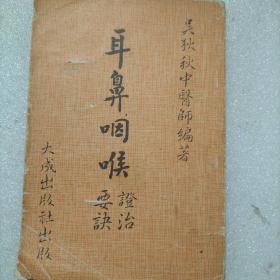 吳狄秋中醫師編著
耳鼻咽喉
證治
要訣
大成出版社出版